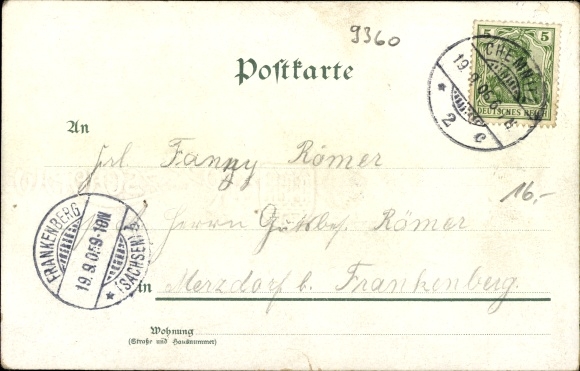 9360
5 5
DEUTSCHES REICH
CHEMNITZ
19.9.05
* 2 c
Postkarte
An
Frl. Fanny Römer
16,-
Herrn Gutsbes. Römer
FRANKENBERG
19.9.05 9-10N
* (SACHSEN) b
in Merzdorf b. Frankenberg.
Wohnung
(Straße und Hausnummer)